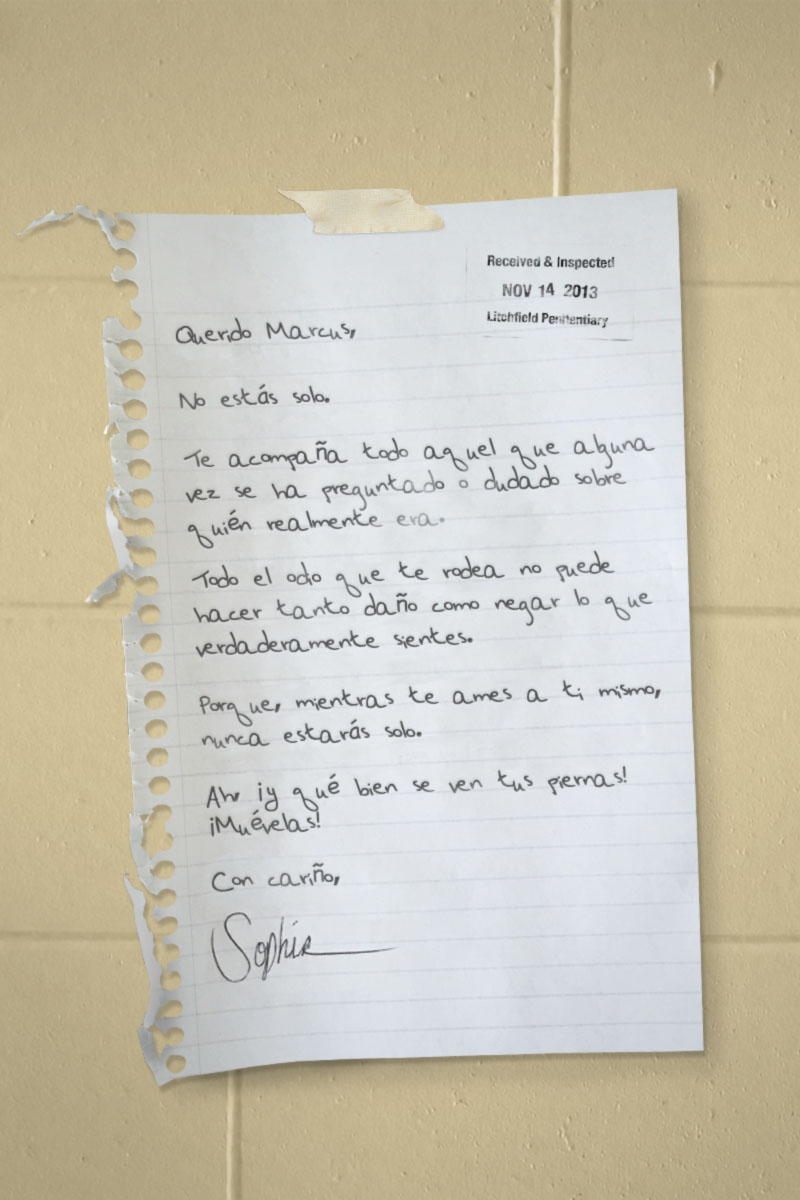 Received & Inspected
NOV 14 2013
Litchfield Penitentiary
Querido Marcus,
No estás solo.
Te acompaña todo aquel que alguna
vez se ha preguntado o dudado sobre
quién realmente era.
Todo el odio que te rodea no puede
hacer tanto daño como negar lo que
verdaderamente sientes.
Porque, mientras te ames a ti mismo,
nunca estarás solo.
Ah, ¡y qué bien se ven tus piernas!
¡Muévelas!
Con cariño,
Sophia